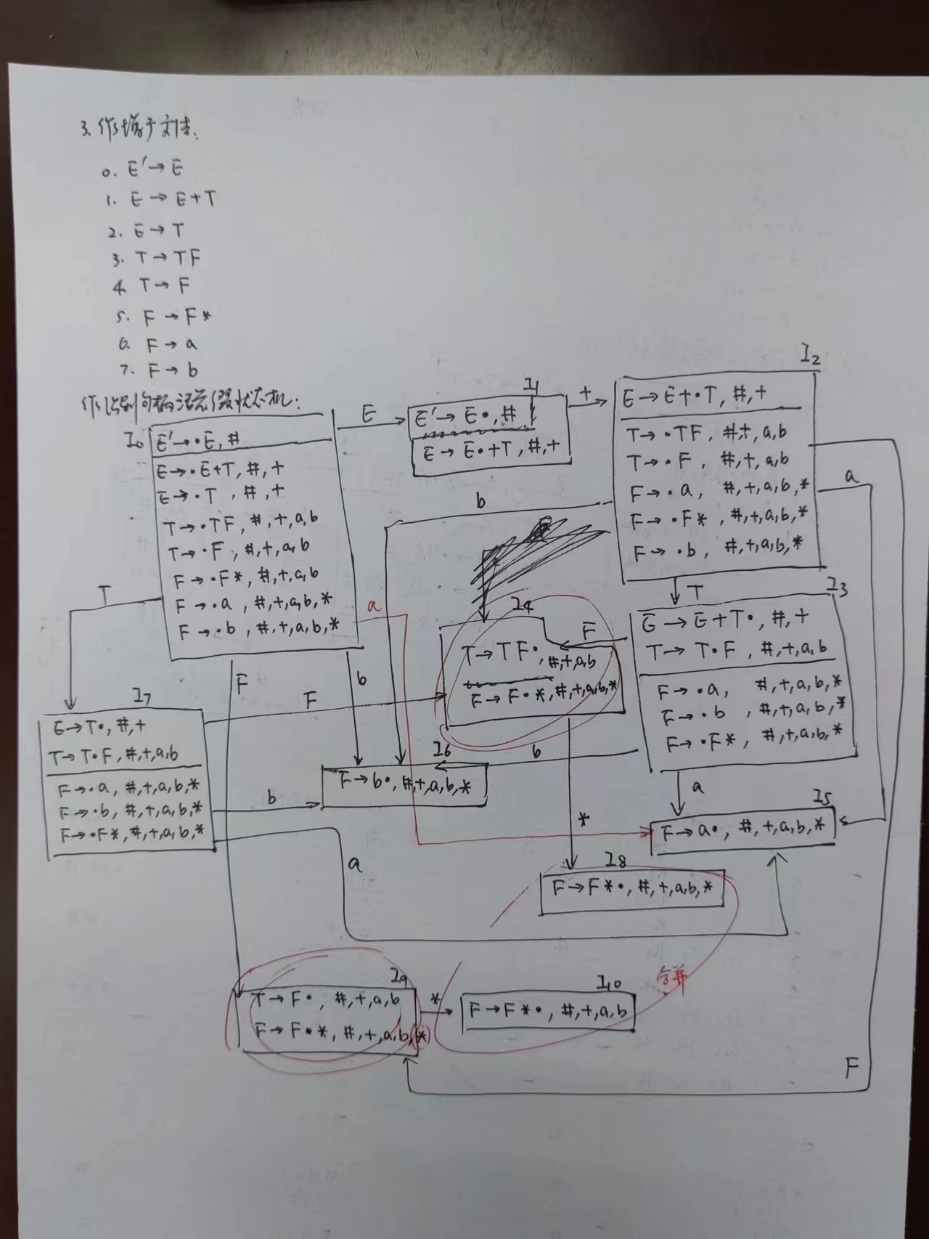 3. 作增广文法:
0. E'→E
1. E→E+T
2. E→T
3. T→TF
4. T→F
5. F→F*
6. F→a
7. F→b
作识别句柄 有限状态机:
I0
E'→·E, #
E→·E+T, #, +
E→·T, #, +
T→·TF, #, +, a, b
T→·F, #, +, a, b
F→·F*, #, +, a, b
F→·a, #, +, a, b, *
F→·b, #, +, a, b, *
E
I1
E'→E·, #
E→E·+T, #, +
+
I2
E→E+·T, #, +
T→·TF, #, +, a, b
T→·F, #, +, a, b
F→·a, #, +, a, b, *
F→·F*, #, +, a, b, *
F→·b, #, +, a, b, *
b
a
T
T
a
F
b
I3
E→E+T·, #, +
T→T·F, #, +, a, b
F→·a, #, +, a, b, *
F→·b, #, +, a, b, *
F→·F*, #, +, a, b, *
F
I4
T→TF·, #, +, a, b
F→F·*, #, +, a, b, *
I7
E→T·, #, +
T→T·F, #, +, a, b
F→·a, #, +, a, b, *
F→·b, #, +, a, b, *
F→·F*, #, +, a, b, *
F
b
a
I6
F→b·, #, +, a, b, *
b
a
*
I5
F→a·, #, +, a, b, *
I8
F→F*·, #, +, a, b, *
合并
I9
T→F·, #, +, a, b
F→F·*, #, +, a, b, (*)
*
I10
F→F*·, #, +, a, b
F